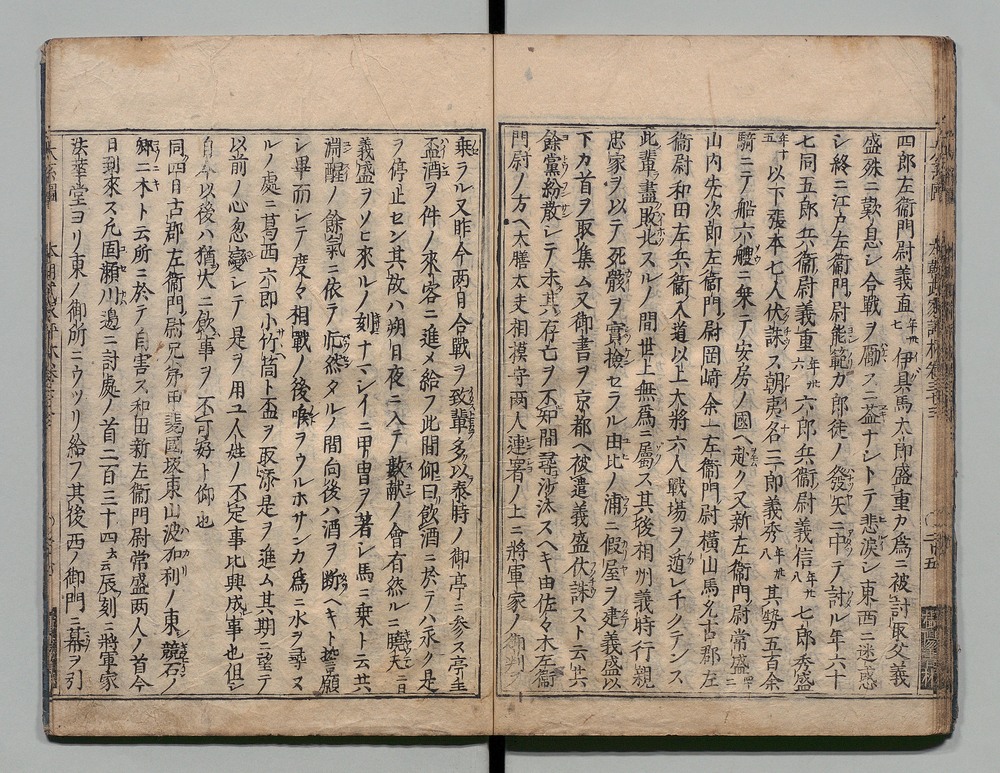 四郎左衞門尉義直 年卅七 伊具馬太郎盛重カ爲ニ被討取父義
盛殊ニ歎息シ合戰ヲ勵スニ益ナシトテ悲涙シ東西ニ迷惑
シ終ニ江戸左衞門尉能範カ郎徒ノ發矢ニ中テ討ル年六十
七同五郎兵衞尉義重 年卅六 六郎兵衞尉義信 年廿八 七郎秀盛
年十五 以下張本七人伏誅ス朝夷名三郎義秀 年卅八 其勢五百余
騎ニテ船六艘ニ乗テ安房ノ國ヘ赴ク又新左衞門尉常盛 四十二
山内先次郎左衞門尉岡﨑余一左衞門尉横山馬允古郡左
衞尉和田左兵衞入道以上大將六人戰塲ヲ遁レチクテンス
此輩盡敗北スルノ間世上無爲ニ屬ス其後相州義時行親
忠家ヲ以テ死骸ヲ實撿セラル由比ノ浦ニ假屋ヲ建義盛以
下カ首ヲ取集ム又御書ヲ京都ヘ被遣義盛伏誅スト云共
餘黨紛散シテ未其存亡ヲ不知間尋沙汰スヘキ由佐々木左衞
門尉ノ方ヘ大膳太夫相模守兩人連署ノ上ニ將軍家ノ御判ヲ
乗ラル又昨今兩日合戰ヲ致輩多以泰時ノ御亭ニ参ス亭主
盃酒ヲ件ノ來客ニ進メ給フ此間仰曰飲酒ニ於テハ永ク是
ヲ停止セン其故ハ朔日夜ニ入テ數献ノ會有然ルニ曉天 二日
義盛ヲソヒ來ルノ刻ナマシイニ甲冑ヲ著シ馬ニ乗ト云共
淵醒ノ餘氣ニ依テ忙然タルノ間向後ハ酒ヲ斷ヘキト誓願
シ畢而シテ度々相戰ノ後喉ヲウルホサンカ爲ニ水ヲ尋ヌ
ルノ處ニ葛西六郎小竹筒ト盃ヲ取添是ヲ進ム其期ニ望テ
以前ノ心忽變シテ是ヲ用ユ人姓ノ不定事比興成事也但シ
自今以後ハ猶大ニ飲事ヲ不可好ト仰也
同四日古郡左衞門尉兄弟甲斐國坂東山波加利ノ東競石ノ
郷二木ト云所ニ於テ自害ス和田新左衞門尉常盛両人ノ首今
日到來ス凡固瀬川邊ニ討處ノ首二百三十四 云云 辰刻ニ將軍家
法華堂ヨリ東ノ御所ニウツリ給フ其後西ノ御門ニ幕ヲ引